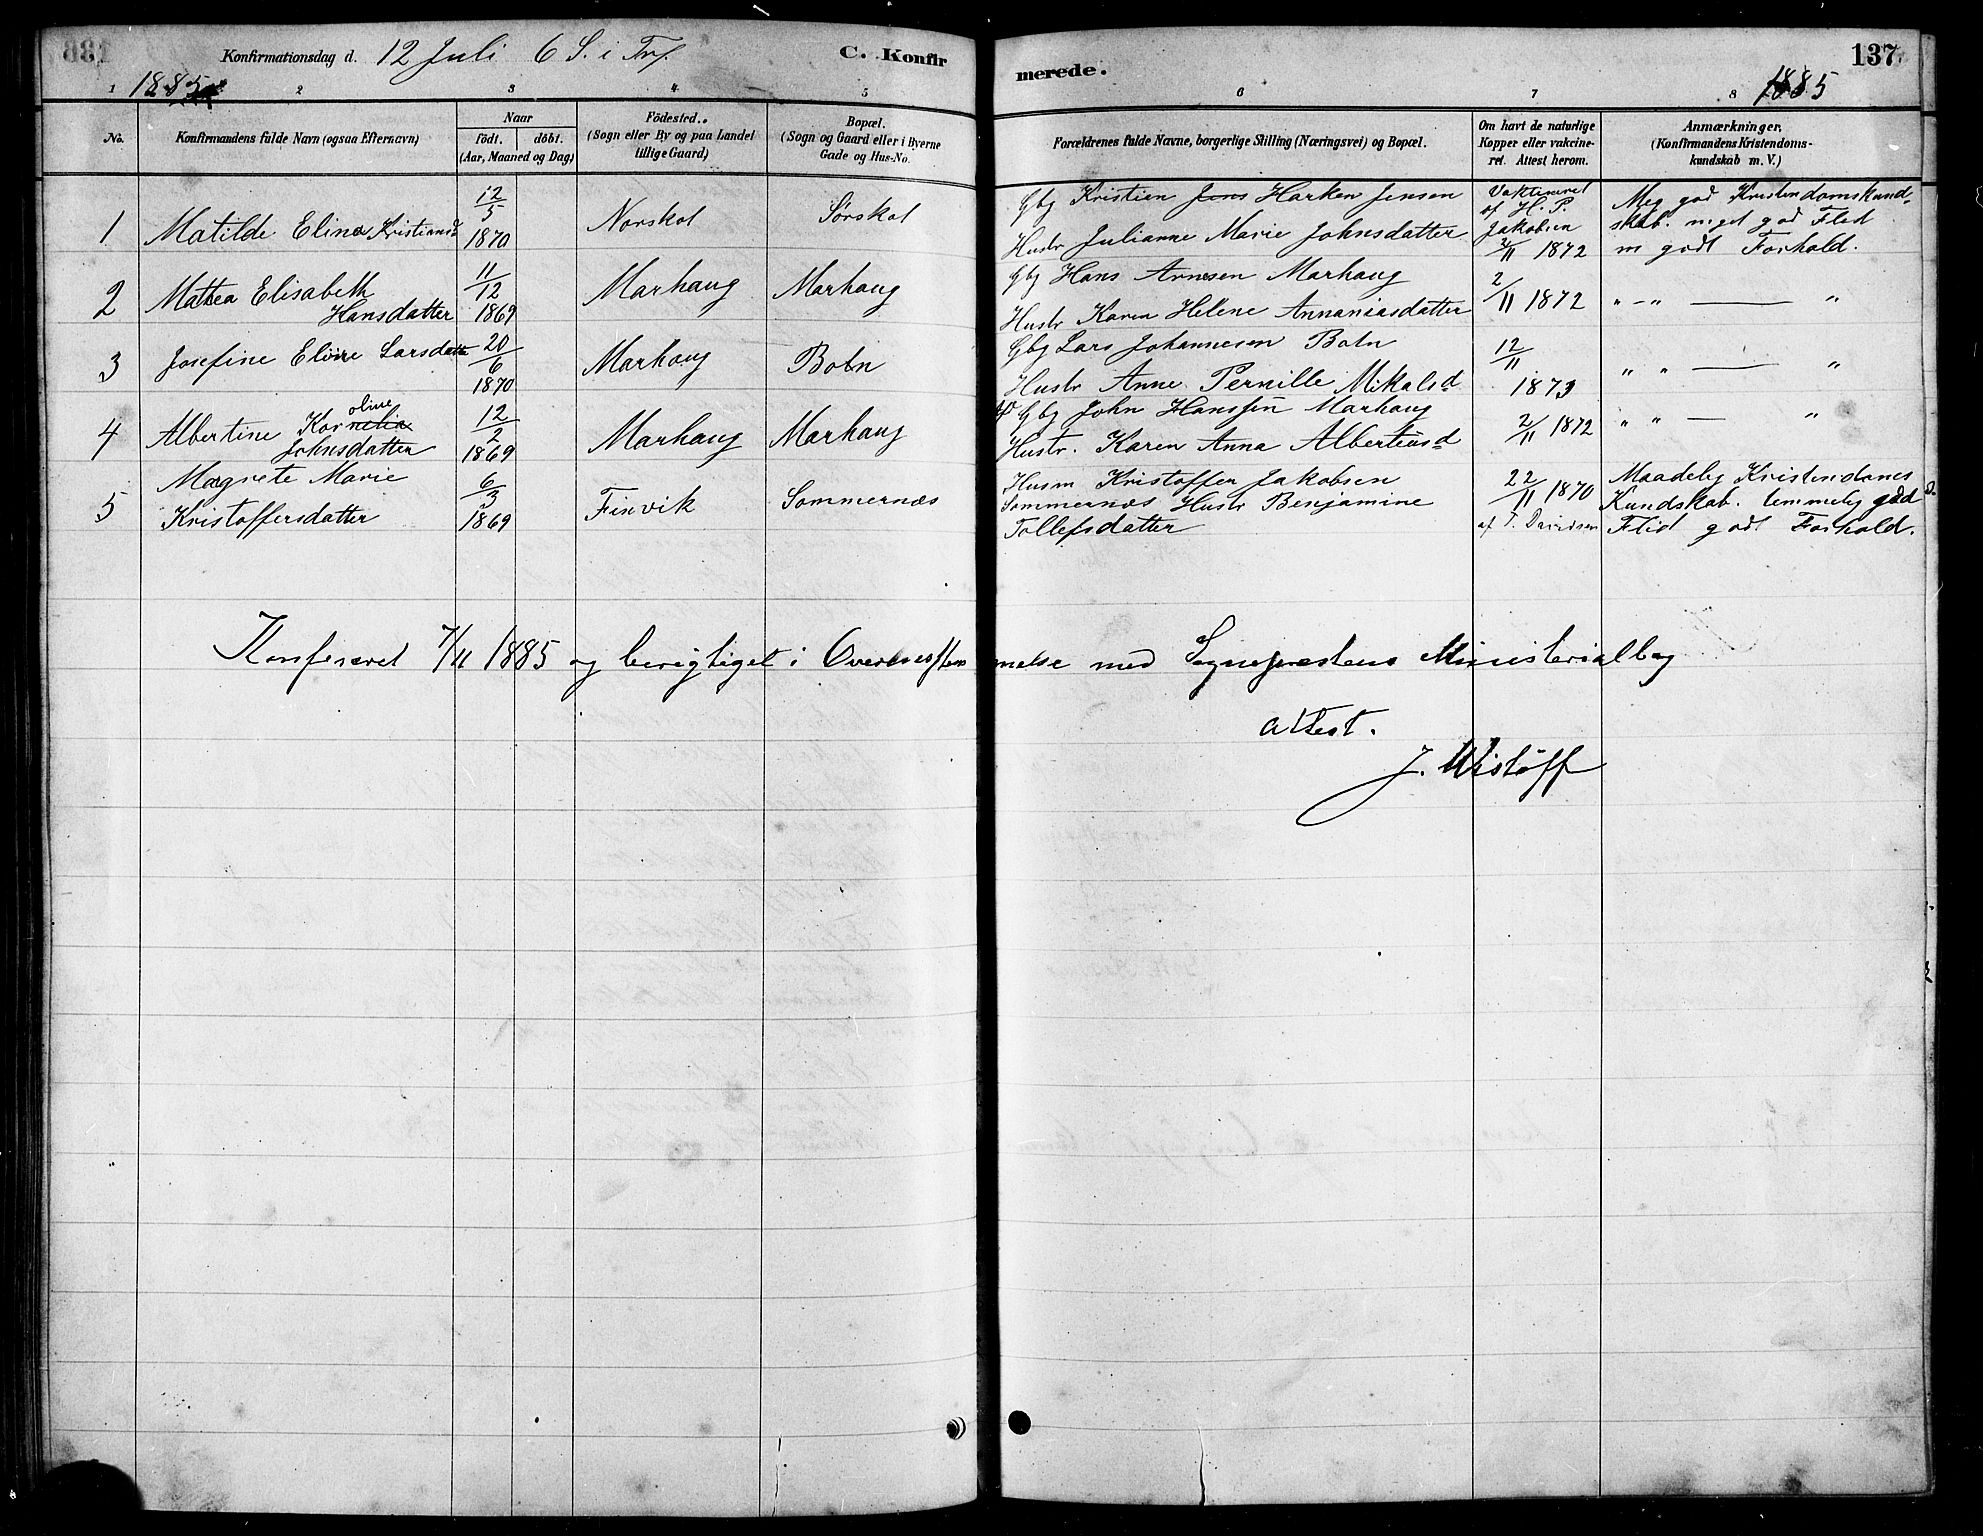 Konfirmationsdag d. 12 Juli 6 S. i Trf. C. Konfir
merede. 137
1885 1885
1 2 3 4 5 6 7 8
No. Konfirmandens fulde Navn (ogsaa Efternavn) Naar födt. döbt. (Aar, Maaned og Dag)
Födested. (Sogn eller By og paa Landet tillige Gaard)
Bopæl. (Sogn og Gaard eller i Byerne Gade og Hus-No.
Forældrenes fulde Navne, borgerlige Stilling (Næringsvei) og Bopæl.
Om havt de naturlige Kopper eller vakcineret. Attest herom.
Anmærkninger. (Konfirmandens Kristendomskundskab m. V.)
1 Matilde Elina Kristiansd 12/5 1870 Norskot Sörskot
Gbg Kristian Jens Harken Jensen
Hustr Julianne Marie Johnsdatter
af H. P. Jakobsen 2/11 1872
Meg god Kristendomskund-
skab. meget god Flid
m godt Forhold.
2 Mattea Elisabeth
Hansdatter 11/12 1869 Marhaug Marhaug
Gbg Hans Arnesen Marhaug
Hustr Karen Helene Annaniasdatter
2/11 1872 " — " — "
3 Josefine Elvire Larsdatter 20/6 1870 Marhaug Botn
Gbg Lars Johannesen Botn
Hustr Anne Pernille Mikalsd
12/11 1873 " " — "
4 Albertine Kornelia oline
Johnsdatter 12/2 1869 Marhaug Marhaug
Gbg John Hanssen Marhaug
Hustr. Karen Anna Albertusd
2/11 1872 " " — "
5 Magrete Marie
Kristoffersdatter 6/3 1869 Finvik Sommernæs
Husm Kristoffer Jakobsen
Sommernæs Hustr Benjamine
Tollefsdatter
22/11 1870
af T. Davidsen
Maadelig Kristendoms
Kundskab. temmelig god
Flid godt Forhold.
Konfereret 7/11 1885 og berigtiget i Overensstem
melse med Sognepræstens Ministerialbog
attest.
J. Wisløff